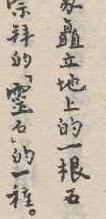 矗立地上的一根石
崇拜的「靈石」的一種。